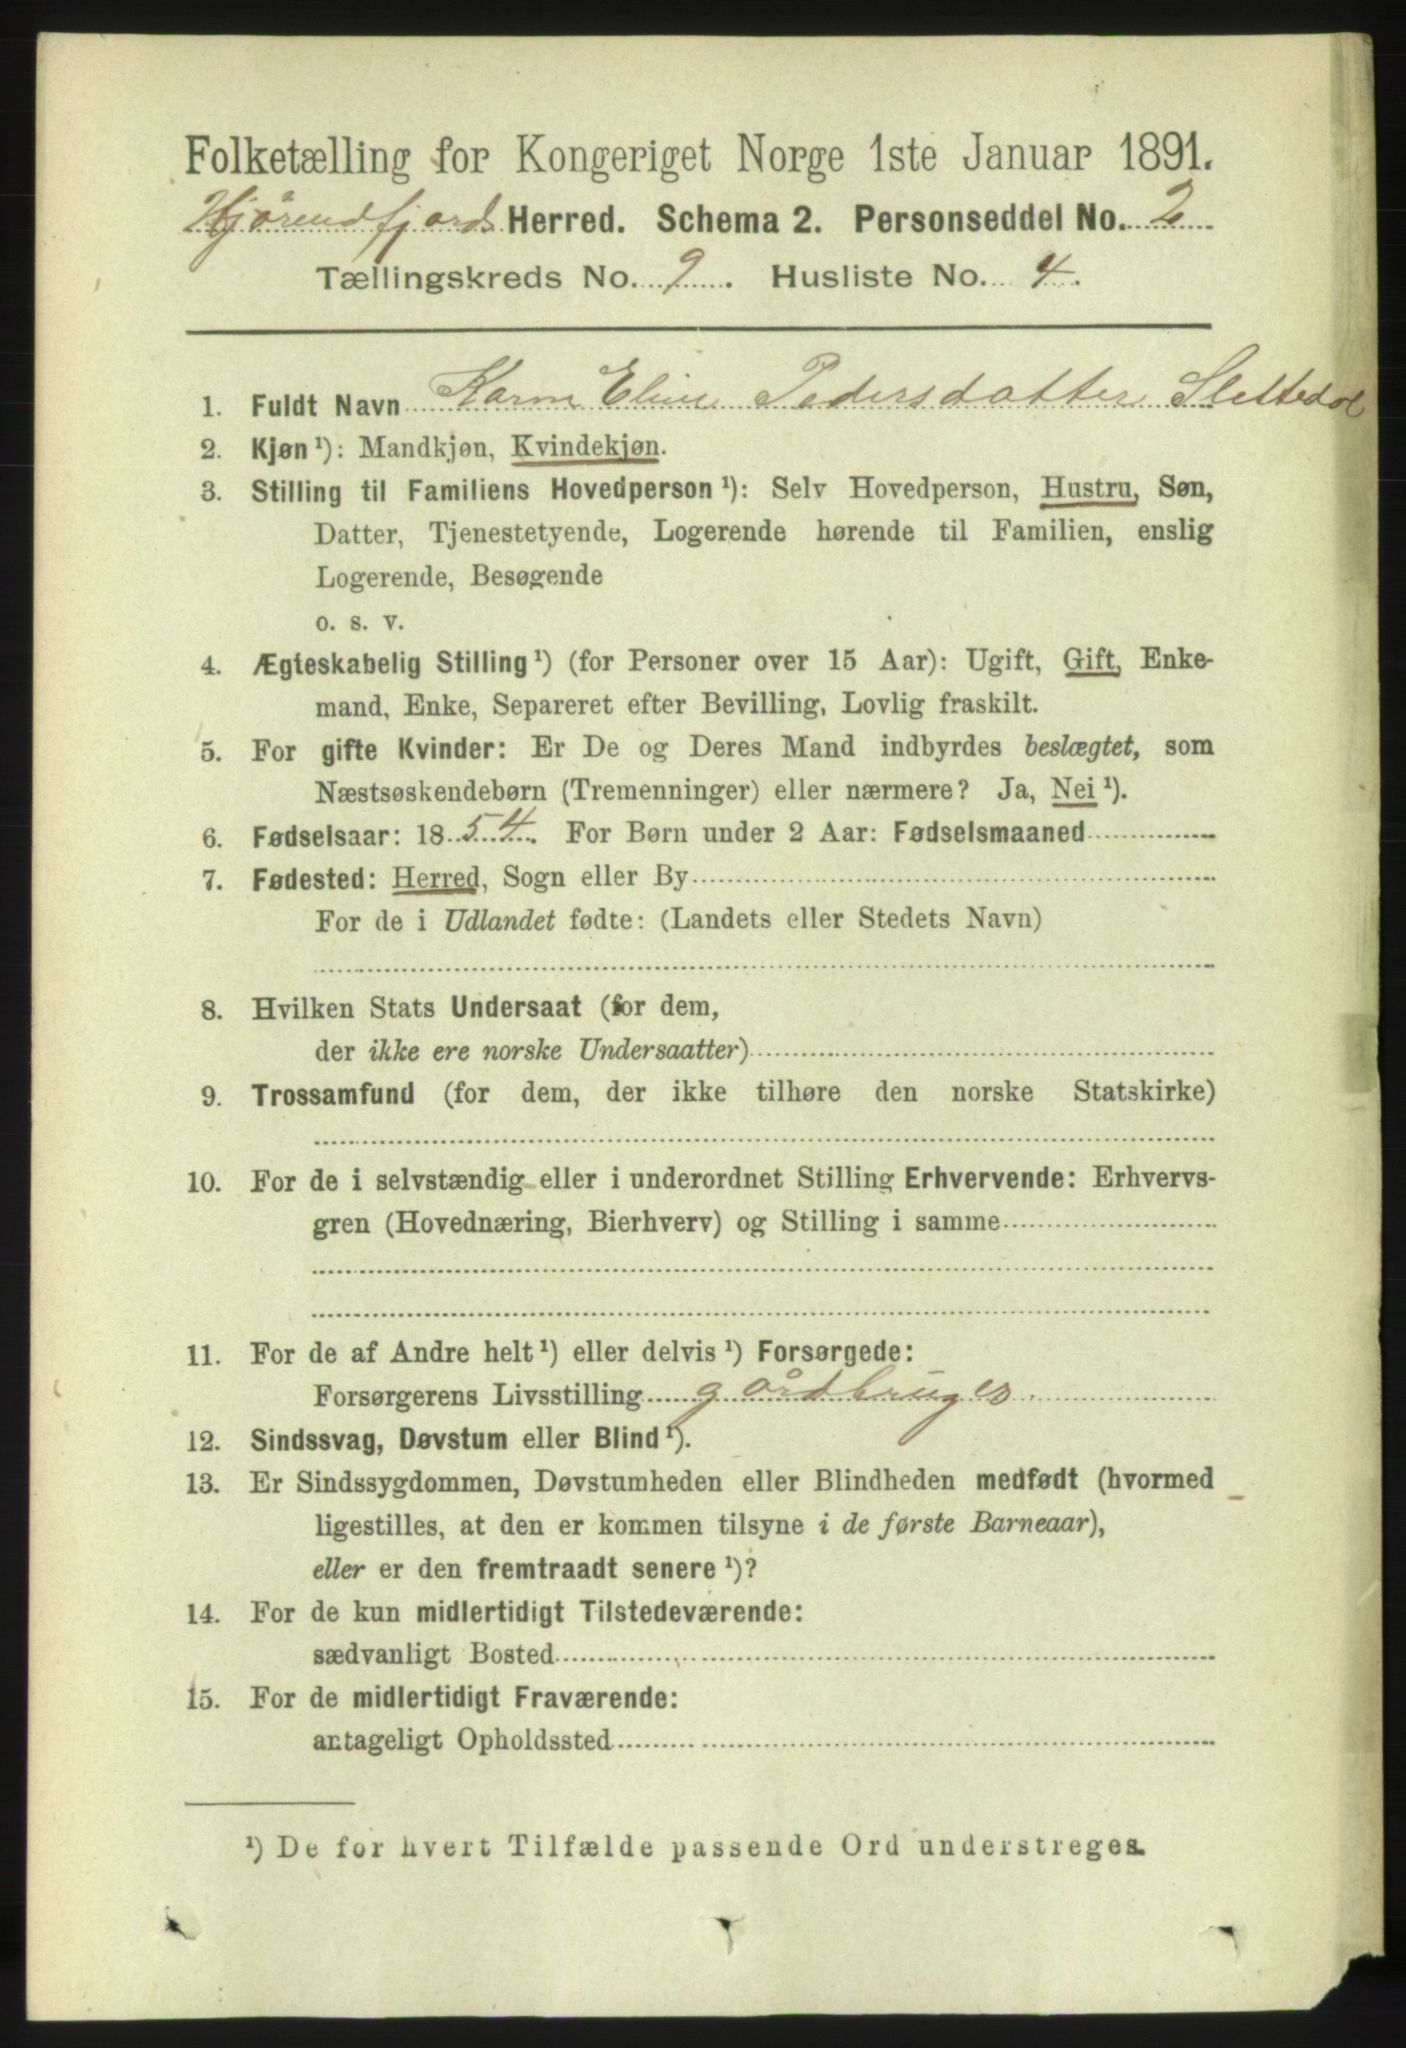 Folketælling for Kongeriget Norge 1ste Januar 1891.
Hjørendfjords Herred. Schema 2. Personseddel No. 2
Tællingskreds No. 9. Husliste No. 4.
1. Fuldt Navn Karen Eline Pedersdatter Slettedal
2. Kjøn ¹): Mandkjøn, Kvindekjøn.
3. Stilling til Familiens Hovedperson ¹): Selv Hovedperson, Hustru, Søn,
Datter, Tjenestetyende, Logerende hørende til Familien, enslig
Logerende, Besøgende
o. s. v.
4. Ægteskabelig Stilling ¹) (for Personer over 15 Aar): Ugift, Gift, Enke-
mand, Enke, Separeret efter Bevilling, Lovlig fraskilt.
5. For gifte Kvinder: Er De og Deres Mand indbyrdes beslægtet, som
Næstsøskendebørn (Tremenninger) eller nærmere? Ja, Nei ¹).
6. Fødselsaar: 1854. For Børn under 2 Aar: Fødselsmaaned
7. Fødested: Herred, Sogn eller By
For de i Udlandet fødte: (Landets eller Stedets Navn)
8. Hvilken Stats Undersaat (for dem,
der ikke ere norske Undersaatter)
9. Trossamfund (for dem, der ikke tilhøre den norske Statskirke)
10. For de i selvstændig eller i underordnet Stilling Erhvervende: Erhvervs-
gren (Hovednæring, Bierhverv) og Stilling i samme
11. For de af Andre helt ¹) eller delvis ¹) Forsørgede:
Forsørgerens Livsstilling gårdbruger
12. Sindssvag, Døvstum eller Blind ¹).
13. Er Sindssygdommen, Døvstumheden eller Blindheden medfødt (hvormed
ligestilles, at den er kommen tilsyne i de første Barneaar),
eller er den fremtraadt senere ¹)?
14. For de kun midlertidigt Tilstedeværende:
sædvanligt Bosted
15. For de midlertidigt Fraværende:
antageligt Opholdssted
¹) De for hvert Tilfælde passende Ord understreges.